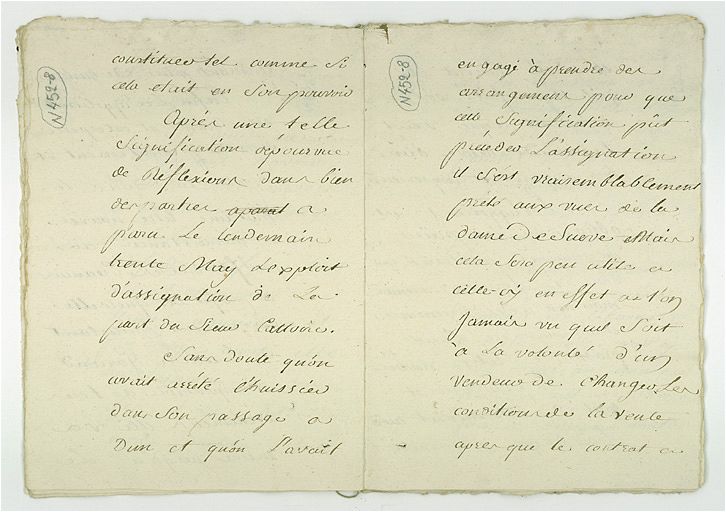 N452-8
constituer tel comme si
cela etait en son pouvoir
Aprés une telle
signification dépourvue
de Réflexions dans bien
des parties aparut a
paru le lendemain
trente May L'exploit
d'assignation de La
part du Sieur
Sans doute qu'on
avait arrété l'huissier
dans son passage a
Dun et qu'on l'avait
N452-8
engagé à prendre des
arrangemens pour que
cette signification put
précéder L'assignation
il s'est vraisemblablement
preté aux vues de la
dame De Sueve Mais
cela sera peu utile a
celle-cy en effet a t'on
Jamais vu quil soit
à La volonté d'un
Vendeur de changer Les
conditions de la vente
apres que le contrat a